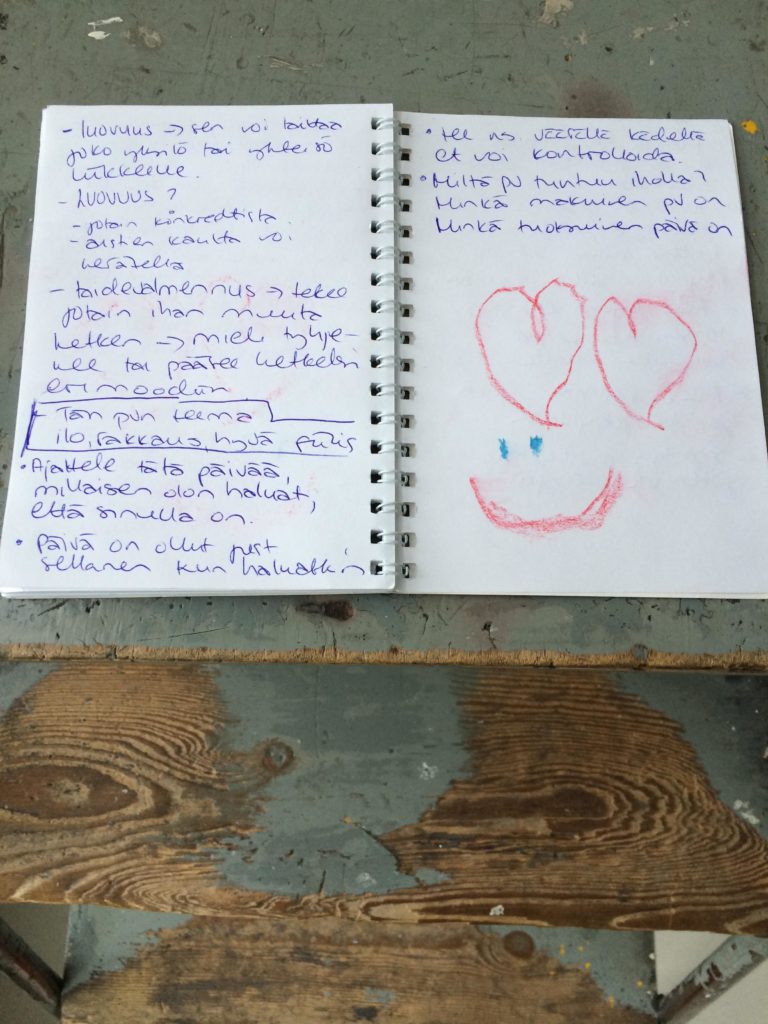 - luovuus → sen voi laittaa
joko yksilö tai yhteisö
liikkeelle.
- Luovuus?
- jotain konkreettista
- aistien kautta voi
herätellä
- taidevalmennus → tekee
jotain ihan muuta
hetken → mieli tyhje-
nee tai pääsee hetkeksi
eri moodiin
- Tän pvn teema
ilo, rakkaus, hyvä fiilis
• Ajattele tätä päivää,
millaisen olon haluat,
että sinulla on.
• päivä on ollut just
sellanen kun haluatkin
• tee ns. väärällä kädellä
et voi kontrolloida.
• Miltä pv tuntuu iholla?
Minkä makuinen pv on
Minkä tuoksuinen päivä on